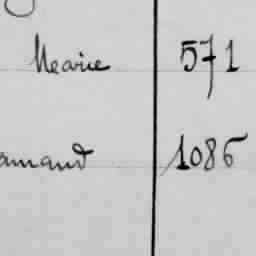 Marie 571
amand 1086